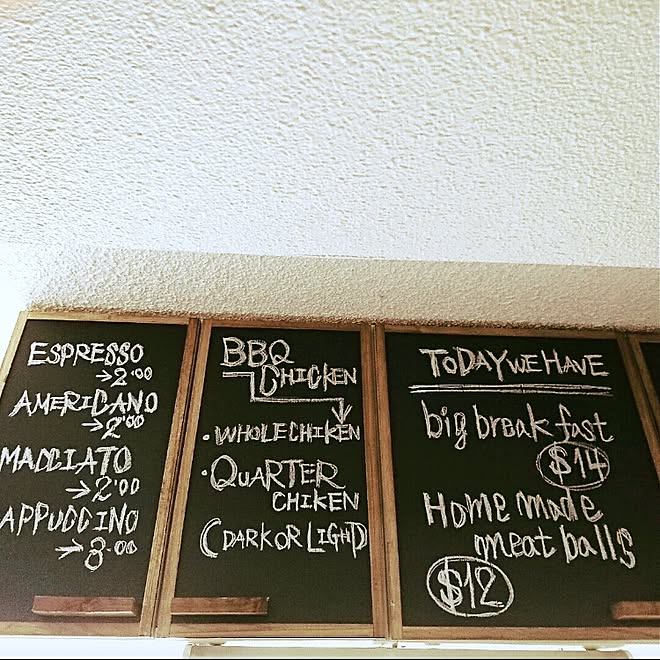 ESPRESSO
→2.00
AMERICANO
→2.00
MACCIATO
→2.00
APPUCCINO
→3.00
BBQ
CHICKEN
• WHOLE CHIKEN
• QUARTER
CHIKEN
(DARK OR LIGHT)
TODAY WE HAVE
big break fast
$14
Home made
meat balls
$12